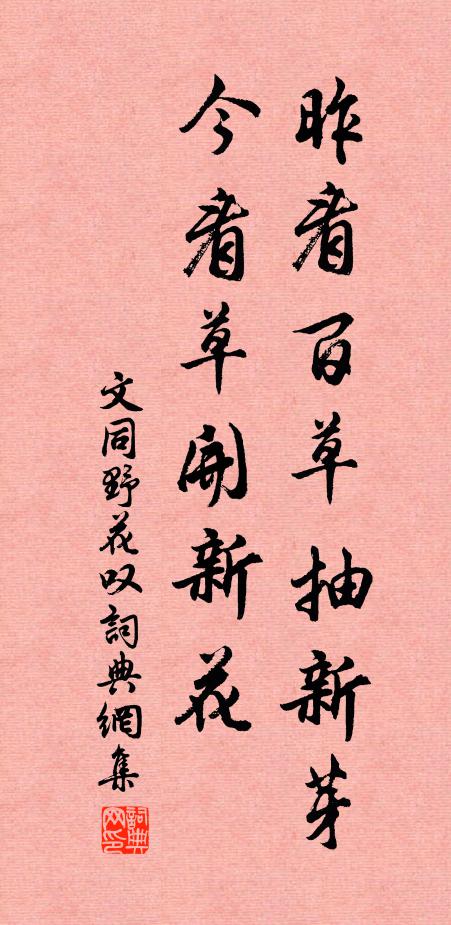 昨看百草抽新芽
今看草開新花
文同野花叹詞典網集
詞典网印